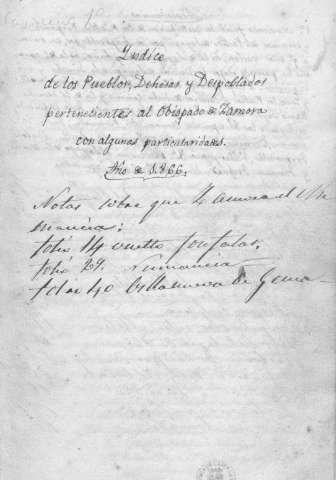 Yndice
de los Pueblos, Dehesas y Despoblados
pertenecientes al Obispado de Zamora
con algunas particularidades.
Año de 1.866.
Notas sobre que Zamora es Nu
mancia:
folio 14 vuelto
folio 29. Numancia
folio 40 Villanueva de